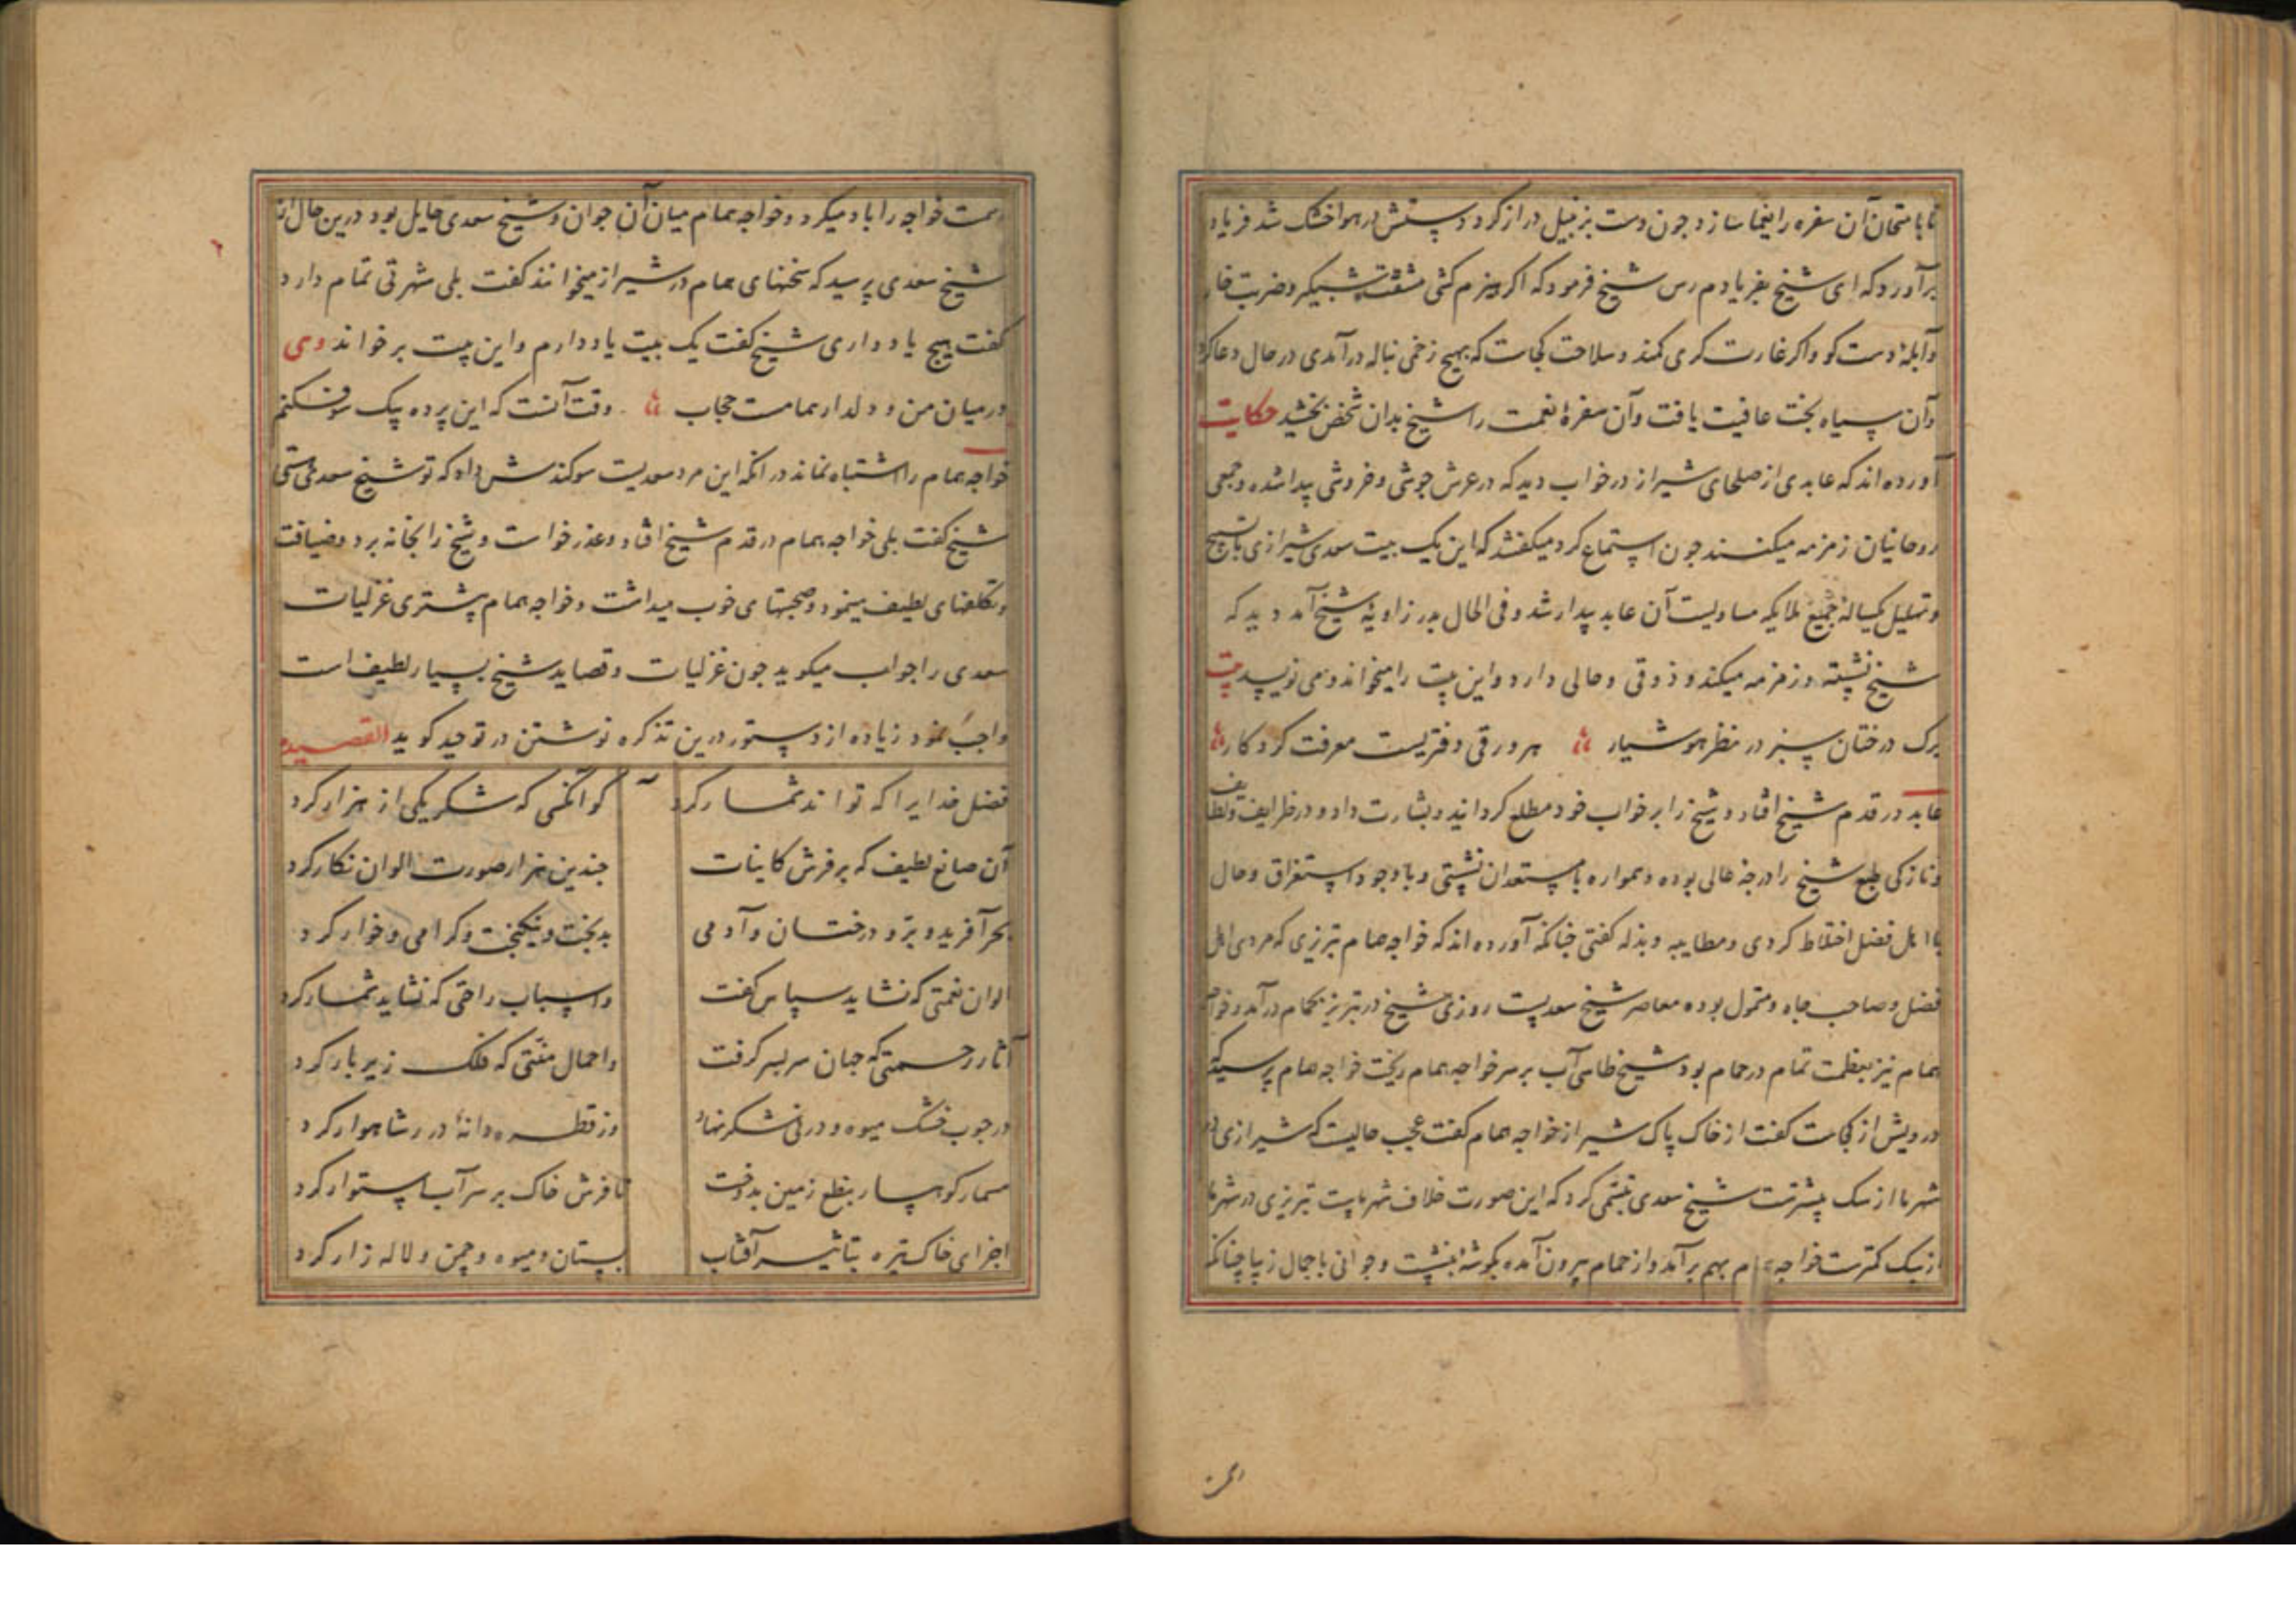 تا بامتحان آن سفره را یغما سازد چون دست بزنبیل دراز کرد دستش در هوا خشک شد فریاد
برآورد که ای شیخ بفریادم رس شیخ فرمود که اگر هیزم کشی مشقت شبگیر و ضربت خار
و آبلهٔ دست کو و اگر غارت کری کمند و سلاحت کجاست که بهیچ زخمی بناله درآمدی در حال دعا کرد
و آن سیاه بخت عافیت یافت و آن سفرهٔ نعمت را شیخ بدان شخص بخشید حکایت
آورده اند که عابدی از صلحای شیراز در خواب دید که در عرش جوشی و خروشی پیدا شده و جمعی
روحانیان زمزمه میکنند چون استماع کرد میکفتند که این یک بیت سعدی شیرازی با تسبیح
و تهلیل یکسالهٔ جمیع ملایکه مساویست آن عابد بیدار شد و فی الحال بدر زاویهٔ شیخ آمد دید که
شیخ نشسته و زمزمه میکند و ذوقی و حالی دارد و این بیت را میخواند و می نویسد بیت
برک درختان سبز در نظر هوشیار هر ورقی دفتریست معرفت کردکار
عابد در قدم شیخ افتاد و شیخ را بر خواب خود مطلع کردانید و بشارت داد و در ظرایف و لطایف
و نازکی طبع شیخ را درجهٔ عالی بوده و همواره با مستعدان نشستی و با وجود استغراق و حال
با اهل فضل اختلاط کردی و مطایبه و بذله کفتی چنانکه آورده اند که خواجه همام تبریزی که مردی اهل
فضل و صاحب جاه و متمول بوده معاصر شیخ سعدیست روزی شیخ در تبریز بحمام درآمد و خواجه
همام نیز بعظمت تمام در حمام بود شیخ طاسی آب بر سر خواجه همام ریخت خواجه همام پرسید که
درویش از کجاست کفت از خاک پاک شیراز خواجه همام کفت عجب حالیست که شیرازی در
شهر ما از سک بیشترست شیخ سعدی تبسمی کرد که این صورت خلاف شهر ماست تبریزی در شهر ما
از سک کمترست خواجه همام بهم برآمد و از حمام بیرون آمده بکوشهٔ بنشست و جوانی با جمال زیبا چنانکه
رسمت خواجه را باد میکرد و خواجه همام میان آن جوان و شیخ سعدی حایل بود درین حال از
شیخ سعدی پرسید که سخنهای همام در شیراز میخوانند کفت بلی شهرتی تمام دارد
کفت هیچ یاد داری شیخ کفت یک بیت یاد دارم و این بیت برخواند
در میان من و دلدار همامست حجاب وقت آنست که این پرده بیک سو فکنم
خواجه همام را اشتباه نماند در انکه این مرد سعدیست سوکندش داد که تو شیخ سعدی نیستی
شیخ کفت بلی خواجه همام در قدم شیخ افتاد و عذر خواست و شیخ را بخانه برد و ضیافت
و تکلفهای لطیف مینمود و صحبتهای خوب میداشت و خواجه همام بیشتری غزلیات
سعدی را جواب میکوید چون غزلیات و قصاید شیخ بسیار لطیف است
واجب نمود زیاده از دستور درین تذکره نوشتن در توحید کوید القصیده
فضل خدایرا که تواند شمار کرد کو آنکسی که شکر یکی از هزار کرد
آن صانع لطیف که بر فرش کاینات چندین هزار صورت الوان نکار کرد
بحر آفرید و برّ و درختان و آدمی بدبخت و نیکبخت و کرامی و خوار کرد
الوان نعمتی که نشاید سپاس کفت و اسباب راحتی که نشاید شمار کرد
آثار رحمتی که جهان سربسر کرفت و احمال منتی که فلک زیر بار کرد
در چوب خشک میوه و در نی شکر نهاد وز قطره دانهٔ در شاهوار کرد
مسمار کوهسار بنطع زمین بدوخت تا فرش خاک بر سر آب استوار کرد
اجزای خاک تیره بتاثیر آفتاب بستان و میوه و چمن و لاله زار کرد